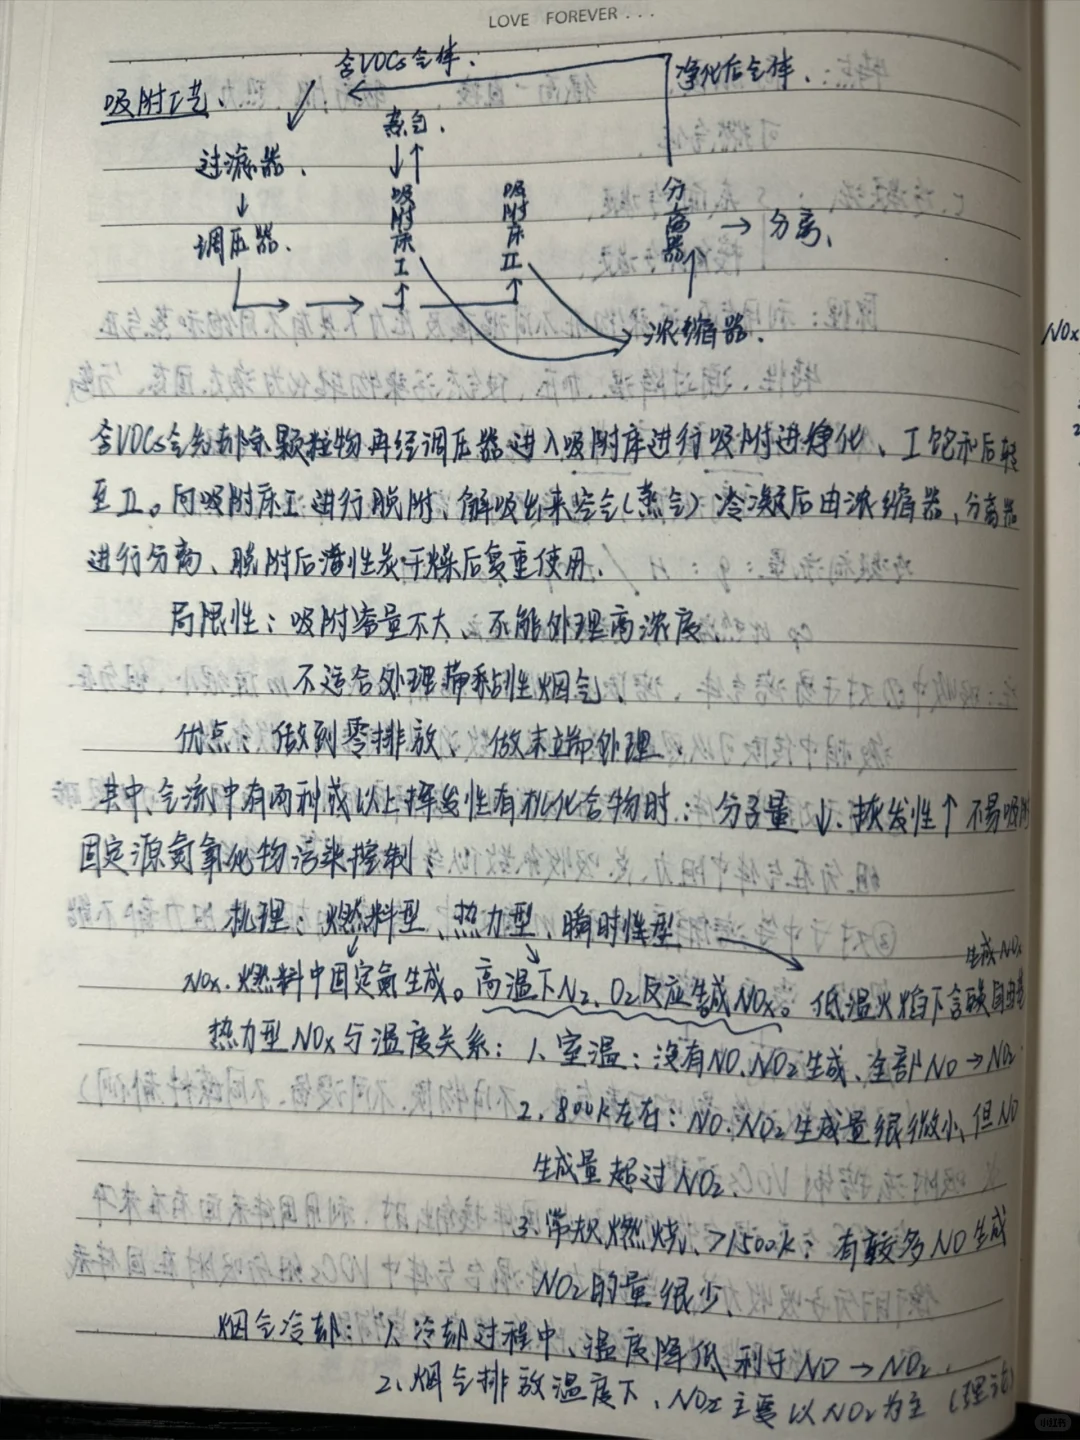 LOVE FOREVER . . .
含VOCs气体.
净化后气体.
吸附工艺.
蒸气.
过滤器.
调压器.
吸附床I
吸附床II
分离器
→ 分离.
浓缩器.
NOx
含VOCs气先去除颗粒物再经调压器进入吸附床进行吸附进净化、I饱和后转
至II。向吸附床I进行脱附、解吸出来空气(蒸气)冷凝后由浓缩器、分离器
进行分离、脱附后活性炭干燥后复重使用.
局限性：吸附容量不大、不能处理高浓度、
不适合处理带粘性烟气、
优点：做到零排放、做末端处理
其中气流中有两种或以上挥发性有机化合物时：分子量↓、挥发性↑不易吸附
固定源氮氧化物污染控制：
机理：燃料型、热力型、瞬时性型
生成NOx
NOx.燃料中固定氮生成。高温下N2、O2反应生成NOx。低温火焰下含碳自由基
热力型NOx与温度关系：1、室温：没有NO、NO2生成、全部NO→NO2.
2、800k左右：NO、NO2生成量很微小、但NO
生成量超过NO2.
3、常规燃烧、>1500k：有较多NO生成
NO2的量很少.
烟气冷却：1、冷却过程中、温度降低利于NO→NO2.
2、烟气排放温度下、NOx主要以NO2为主(理论)
小红书